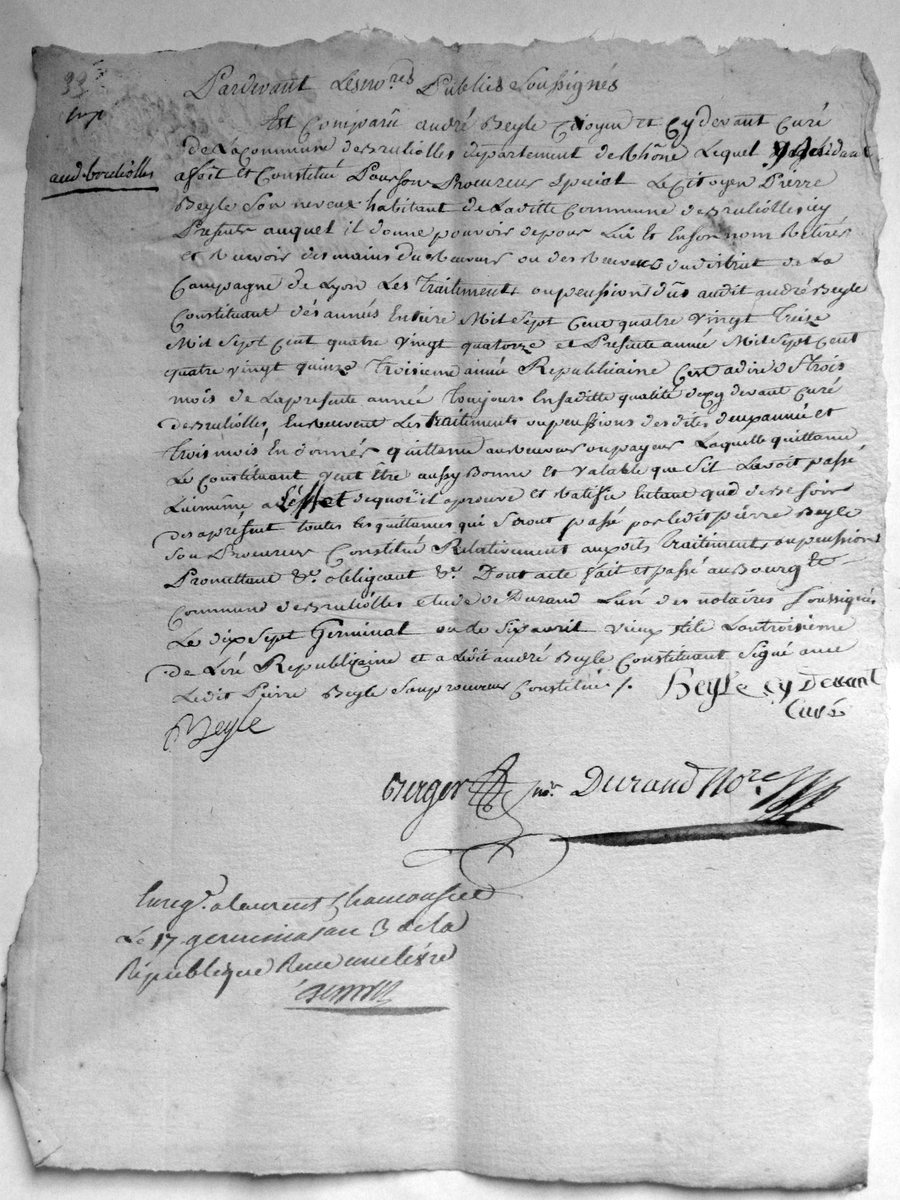 Pardevant Les no.res Publics Soussignés
Est Comparû andré Beyle Citoyen et Cy devant Curé
de La Commune de Brulliolles departement de Rhône Lequel y Residant
aud. brouliolles
a fait et Constitué Pour son Procureur special Le Citoyen Pierre
Beyle Son neveux habitant de Laditte Commune de Brulliolles icy
Present auquel il donne pouvoir de pour Lui et En son nom Retirer
et Recevoir des mains du Receveur ou des Receveurs du district de La
Campagne de Lyon Les Traitements ou pension dûs audit andré Beyle
Constituant des années Entiere Mil Sept Cent quatre vingt Treize
Mil Sept Cent quatre vingt quatorze et Presente année Mil Sept Cent
quatre vingt quinze Troisieme année Republicaine C'est adire des trois
mois de La presente année Toujours En saditte qualité de Cy devant Curé
de Brulliolles, En Recevant Les traitements ou pensions desdites deux année et
trois mois En donner quittance aux Receveur ou payeur Laquelle quittance
Le Constituant veut être aussy Bonne et valable que S'il L'avoit passé
Lui même a L'effet de quoi il aprouve et Ratifie Entant que de Besoin
des apresent toutes Les quittances qui Seront passé par Ledit pierre Beyle
Son Procureur Constitué Relativement auxdits Traitements ou pensions
Promettant &.a obligeant &.a Dont acte fait et passé au Bourg et
Commune de Brulliolles Etude de Durand L'un des notaires Soussignés
Le dix Sept Germinal ou de Six avril vieux stile L'an troisieme
de L'éré Republicaine et a Ledit andré Beyle Constituant Signé avec
Ledit Pierre Beyle Son procureur Constitué /.
Beyle cy Devant
Curé
Beyle
Berger no.re Durand No.re
Enreg.é a Laurent Chamousset
Le 17 germinal an 3 de la
République Reçu une livre